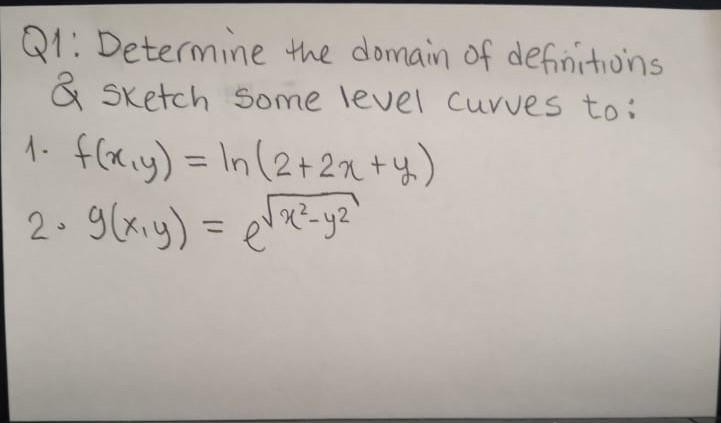 Q1: Determine the domain of definitions
& sketch some level curves to:
1. f(x,y) = ln(2+2x+y)
2. g(x,y) = e^√(x²-y²)